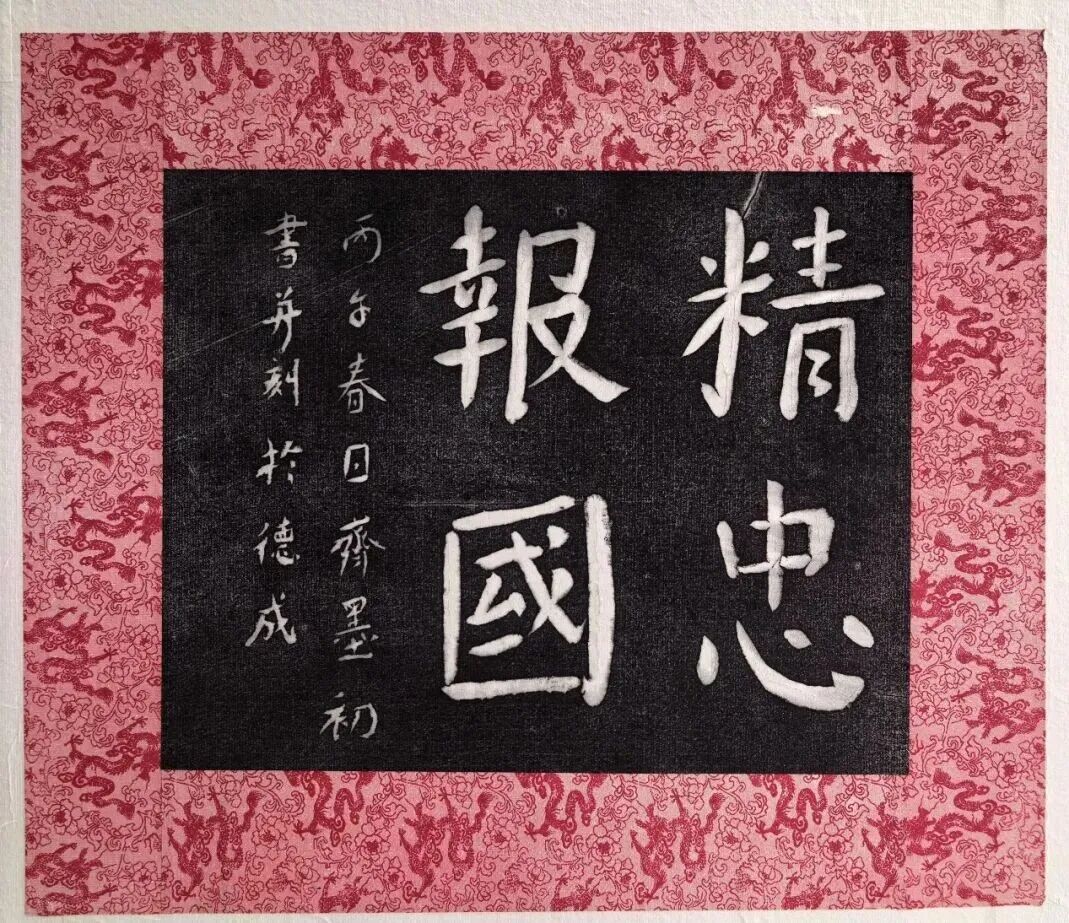 精忠
報國
丙午春日齊墨初
書并刻於德成